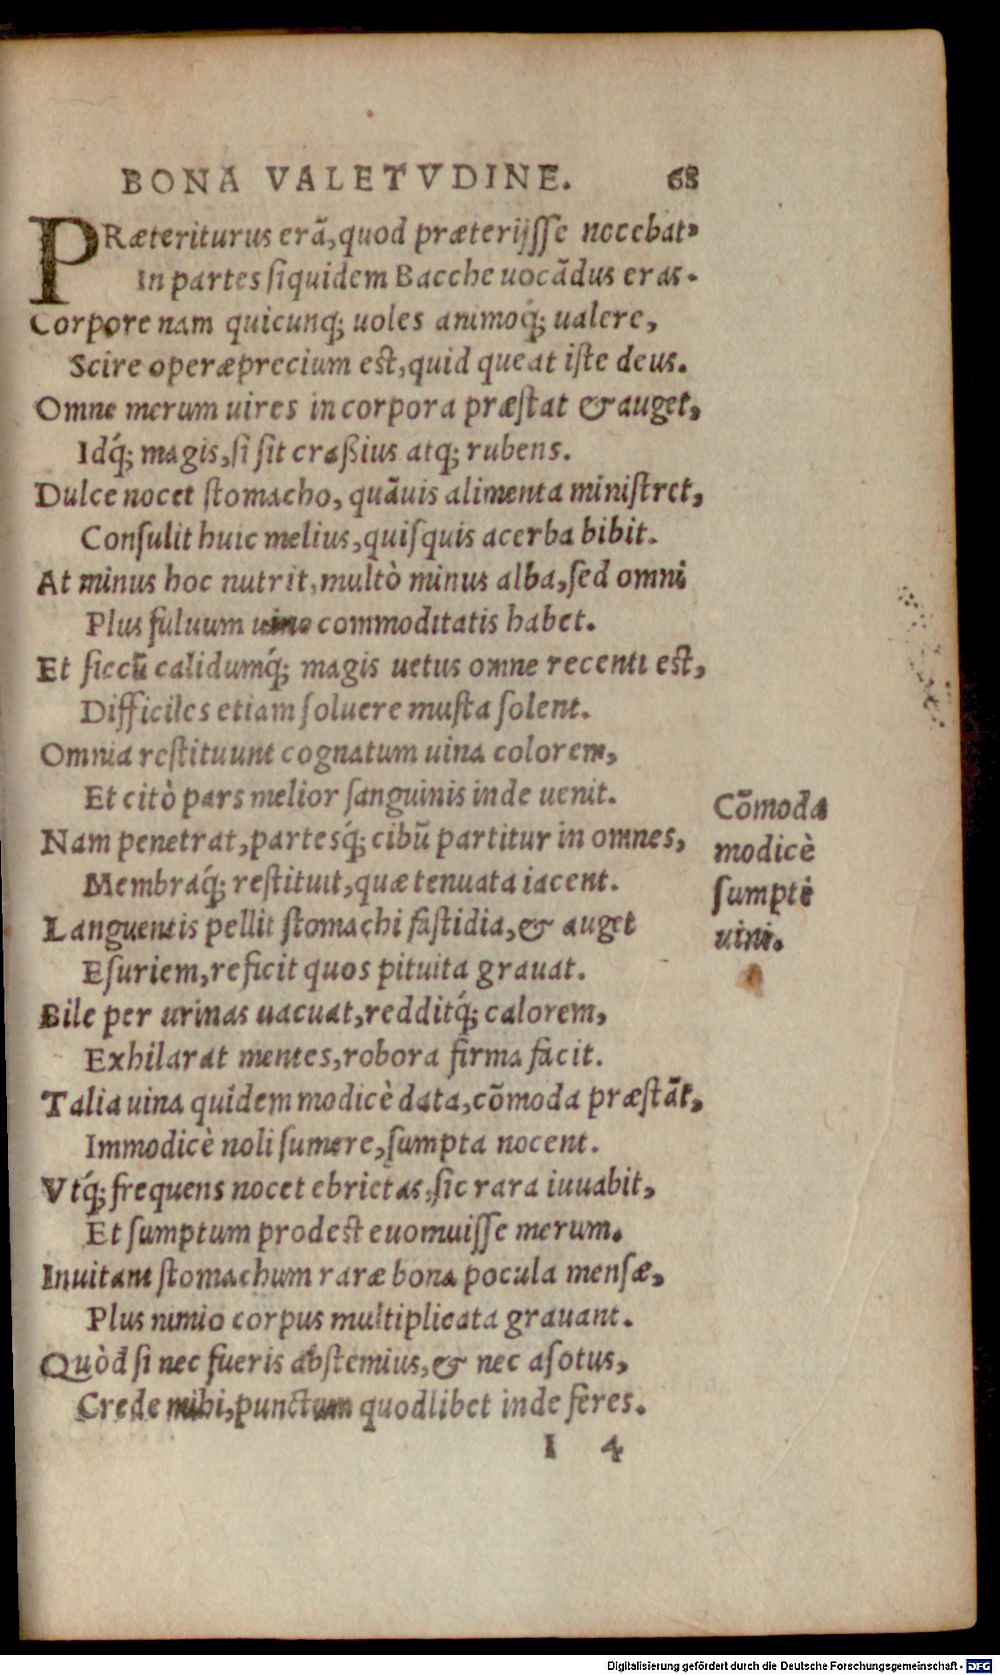 BONA VALETVDINE. 68
PRæteriturus erā, quod præterijsse nocebat.
In partes siquidem Bacche uocādus eras.
Corpore nam quicunq; uoles animoq́; ualere,
Scire operæprecium est, quid queat iste deus.
Omne merum uires in corpora præstat & auget,
Idq́; magis, si sit craßius atq; rubens.
Dulce nocet stomacho, quāuis alimenta ministret,
Consulit huic melius, quisquis acerba bibit.
At minus hoc nutrit, multò minus alba, sed omni
Plus fuluum uino commoditatis habet.
Et siccū calidumq́; magis uetus omne recenti est,
Difficiles etiam soluere musta solent.
Omnia restituunt cognatum uina colorem,
Et citò pars melior sanguinis inde uenit.
Nam penetrat, partesq́; cibū partitur in omnes,
Membraq́; restituit, quæ tenuata iacent.
Languentis pellit stomachi fastidia, & auget
Esuriem, reficit quos pituita grauat.
Bile per urinas uacuat, redditq́; calorem,
Exhilarat mentes, robora firma facit.
Talia uina quidem modicè data, cōmoda præstāt,
Immodicè noli sumere, sumpta nocent.
Vtq́; frequens nocet ebrietas, sic rara iuuabit,
Et sumptum prodest euomuisse merum.
Inuitant stomachum raræ bona pocula mensæ,
Plus nimio corpus multiplicata grauant.
Quòd si nec fueris abstemius, & nec asotus,
Crede mihi, punctum quodlibet inde feres.
I 4
Cōmoda
modicè
sumpti
uini.
Digitalisierung gefördert durch die Deutsche Forschungsgemeinschaft - DFG